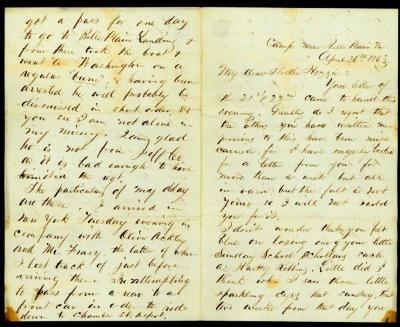 Camp near Belle Plain Va
April 26th 1863
My dear
Your letter of
the 21st & 22nd came to hand this
evening. Greatly do I regret that
the others you have written me
previous to this have been mis-
carried for I have eagerly looked
for a letter from you for
more than a week but all
in vain, but the fault is not
yours so I will not scold
you for it.
I don't wonder that you felt
blue on losing one of your little
Sunday School scholars such
as Hartey Collins. Little did I
think when I saw those little
sparkling eyes that sunday, that
two weeks from that day you
got a pass for one day
to go to Belle Plain Landing &
from there took the boat &
went to Washington on a
regular & having been
arrested he will probably be
dismissed in short order so
you see I am not alone in
my misery. I am glad
he is not from
as it is bad enough to have
in the regt.
The particulars of my delay
are these I arrived in
New York Tuesday evening in
company with Oliver
and Mr. the latter of whom
I lost track of just before
arriving there In attempting
to pass from a rear to a
car in order to ride
down to Chambers St. depot,